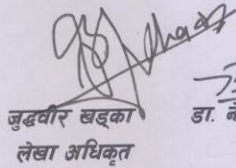 जुद्धवीर खड्का डा.
लेखा अधिकृत